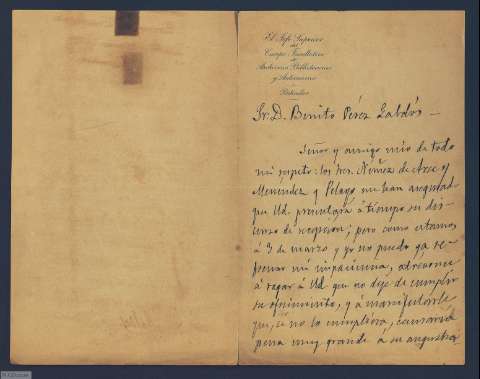 El Jefe Superior
del
Cuerpo Facultativo
de
Archiveros Bibliotecarios
y Anticuarios
Particular
Sr. D. Benito Pérez Galdós —
Señor y amigo mio de todo
mi respeto: los Sres. Núñez de Arce y
Menéndez y Pelayo me han asegurado
que Ud. presentará á tiempo su dis-
curso de recepcion; pero como estamos
á 3 de marzo y yo no puedo ya re-
frenar mi impaciencia, atrévome
á rogar á Ud que no deje de cumplir
su ofrecimiento, y á manifestarle
que, si no lo cumpliera, causaria
pena muy grande á su